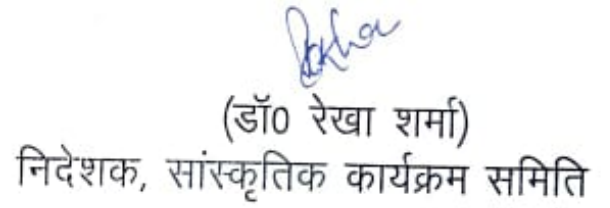 Rekha
(डॉ0 रेखा शर्मा)
निदेशक, सांस्कृतिक कार्यक्रम समिति